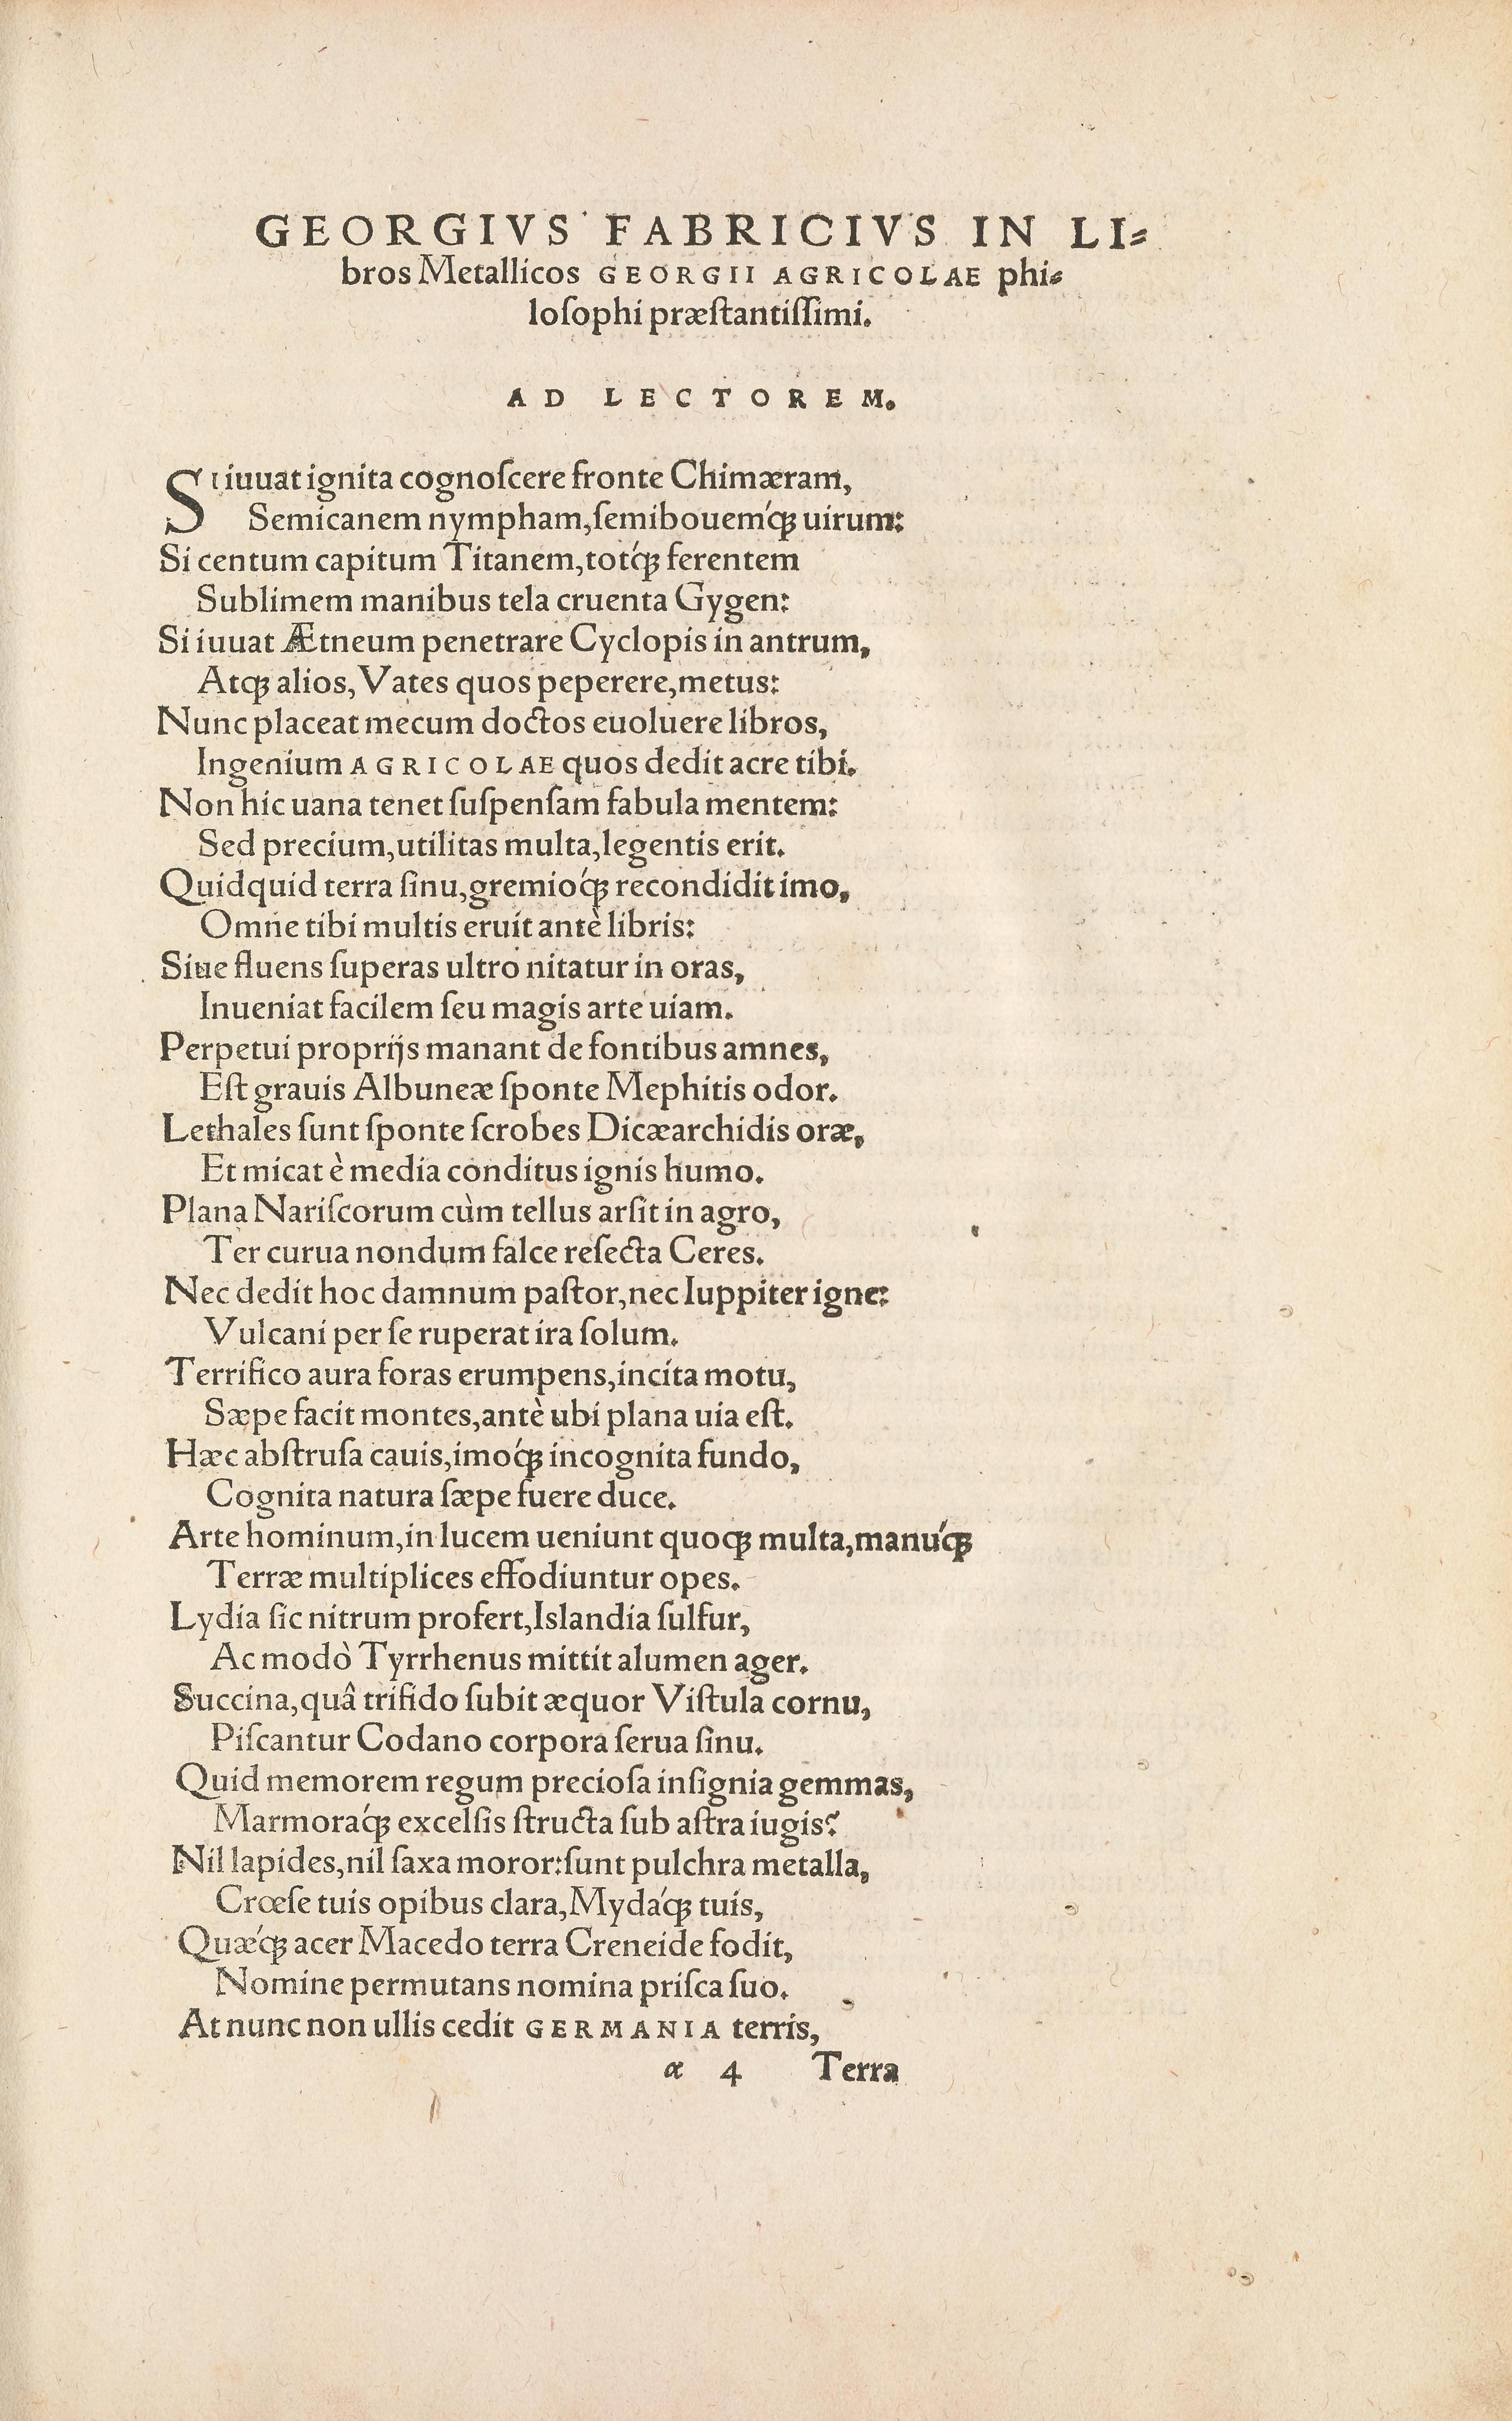 GEORGIVS FABRICIVS IN LI⸗
bros Metallicos GEORGII AGRICOLAE phi⸗
loſophi præſtantiſſimi.
AD LECTOREM.
Si iuuat ignita cognoſcere fronte Chimæram,
Semicanem nympham, ſemibouem'q́ꝫ uirum:
Si centum capitum Titanem, totq́ꝫ ferentem
Sublimem manibus tela cruenta Gygen:
Si iuuat Ætneum penetrare Cyclopis in antrum,
Atqꝫ alios, Vates quos peperere, metus:
Nunc placeat mecum doctos euoluere libros,
Ingenium AGRICOLAE quos dedit acre tibi.
Non hic uana tenet ſuſpenſam fabula mentem:
Sed precium, utilitas multa, legentis erit.
Quidquid terra ſinu, gremioq́ꝫ recondidit imo,
Omne tibi multis eruit antè libris:
Siue fluens ſuperas ultro nitatur in oras,
Inueniat facilem ſeu magis arte uiam.
Perpetui proprijs manant de fontibus amnes,
Eſt grauis Albuneæ ſponte Mephitis odor.
Lethales ſunt ſponte ſcrobes Dicæarchidis oræ,
Et micat è media conditus ignis humo.
Plana Nariſcorum cùm tellus arſit in agro,
Ter curua nondum falce reſecta Ceres.
Nec dedit hoc damnum paſtor, nec Iuppiter igne:
Vulcani per ſe ruperat ira ſolum.
Terrifico aura foras erumpens, incita motu,
Sæpe facit montes, antè ubi plana uia eſt.
Hæc abſtruſa cauis, imoq́ꝫ incognita fundo,
Cognita natura ſæpe fuere duce.
Arte hominum, in lucem ueniunt quoqꝫ multa, manuq́ꝫ
Terræ multiplices effodiuntur opes.
Lydia ſic nitrum profert, Islandia ſulfur,
Ac modò Tyrrhenus mittit alumen ager.
Succina, quâ trifido ſubit æquor Viſtula cornu,
Piſcantur Codano corpora ſerua ſinu.
Quid memorem regum precioſa inſignia gemmas,
Marmoraq́ꝫ excelſis ſtructa ſub aſtra iugis?
Nil lapides, nil ſaxa moror: ſunt pulchra metalla,
Crœſe tuis opibus clara, Mydaq́ꝫ tuis,
Quæq́ꝫ acer Macedo terra Creneide fodit,
Nomine permutans nomina priſca ſuo.
At nunc non ullis cedit GERMANIA terris,
α 4 Terra